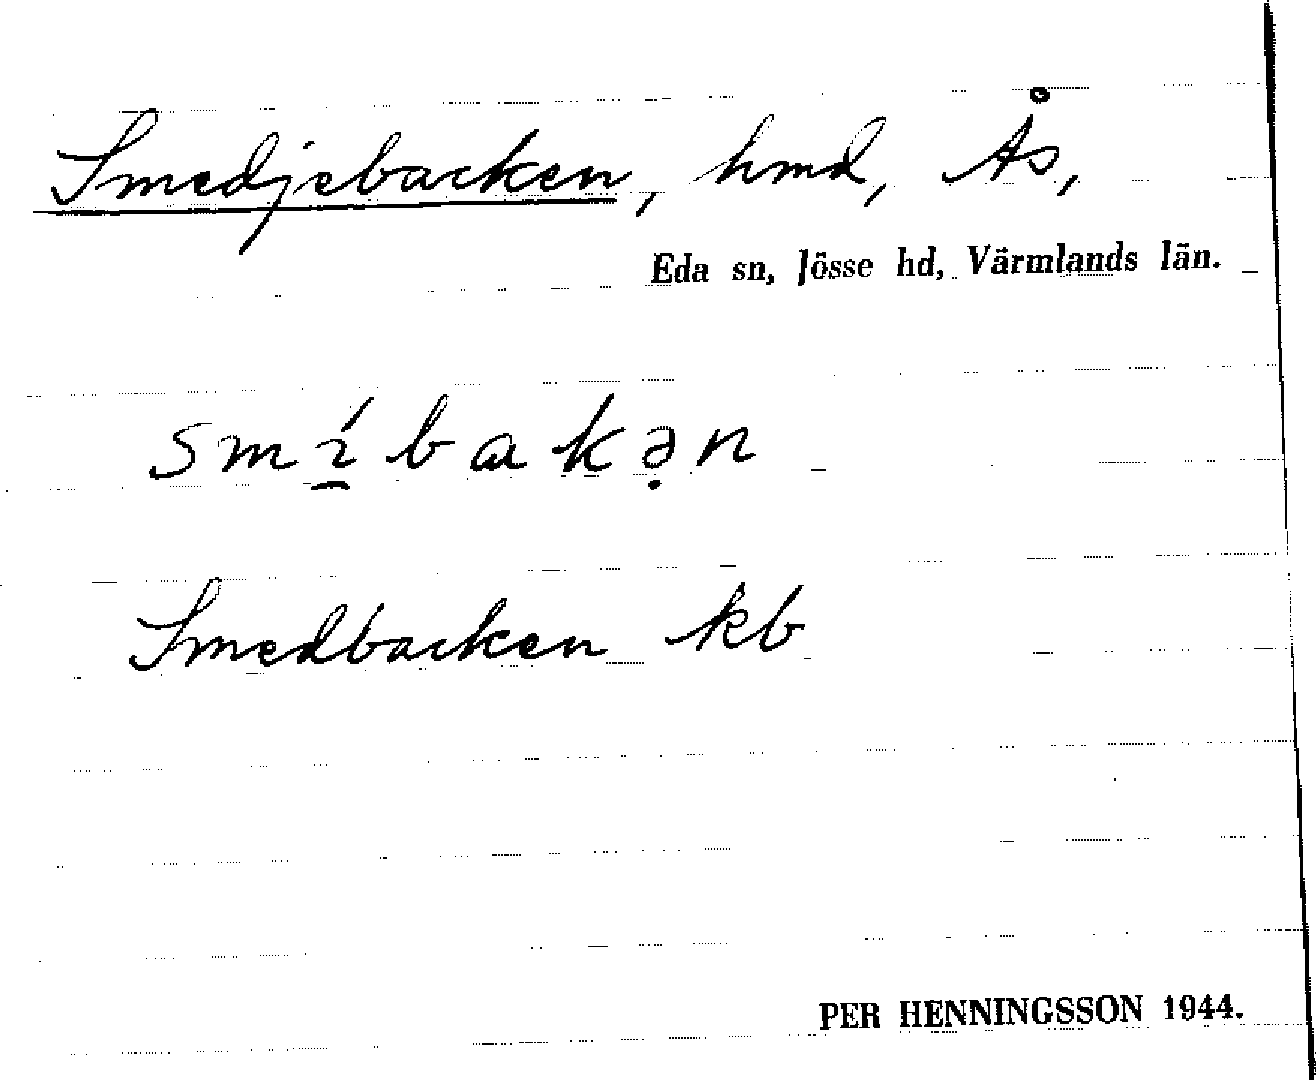 Smedjebacken, hmd, Ås,
Eda sn, Jösse hd, Värmlands län.
smí̱bakə̣n
Smedbacken kb
PER HENNINGSSON 1944.